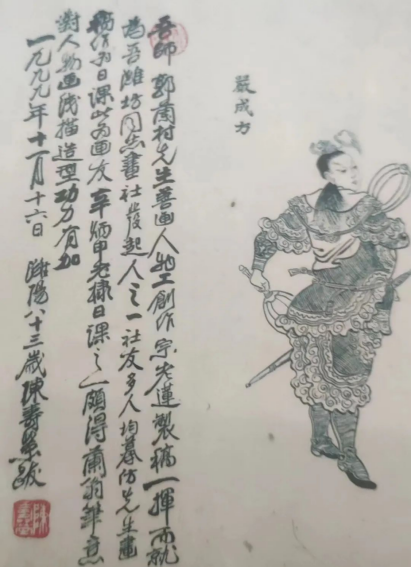 嚴成方
吾師郭蘭村先生善画人物工創作宗老蓮製稿一揮而就
為吾濰坊同志畫社發起人之一社友多人均摹仿先生畫
稿作為日課此為画友辛炳甲老棣日課之一頗得蘭翁筆意
對人物画线描造型功力有加
一九九九年十一月十六日 濰陽八十三歲陳壽榮跋